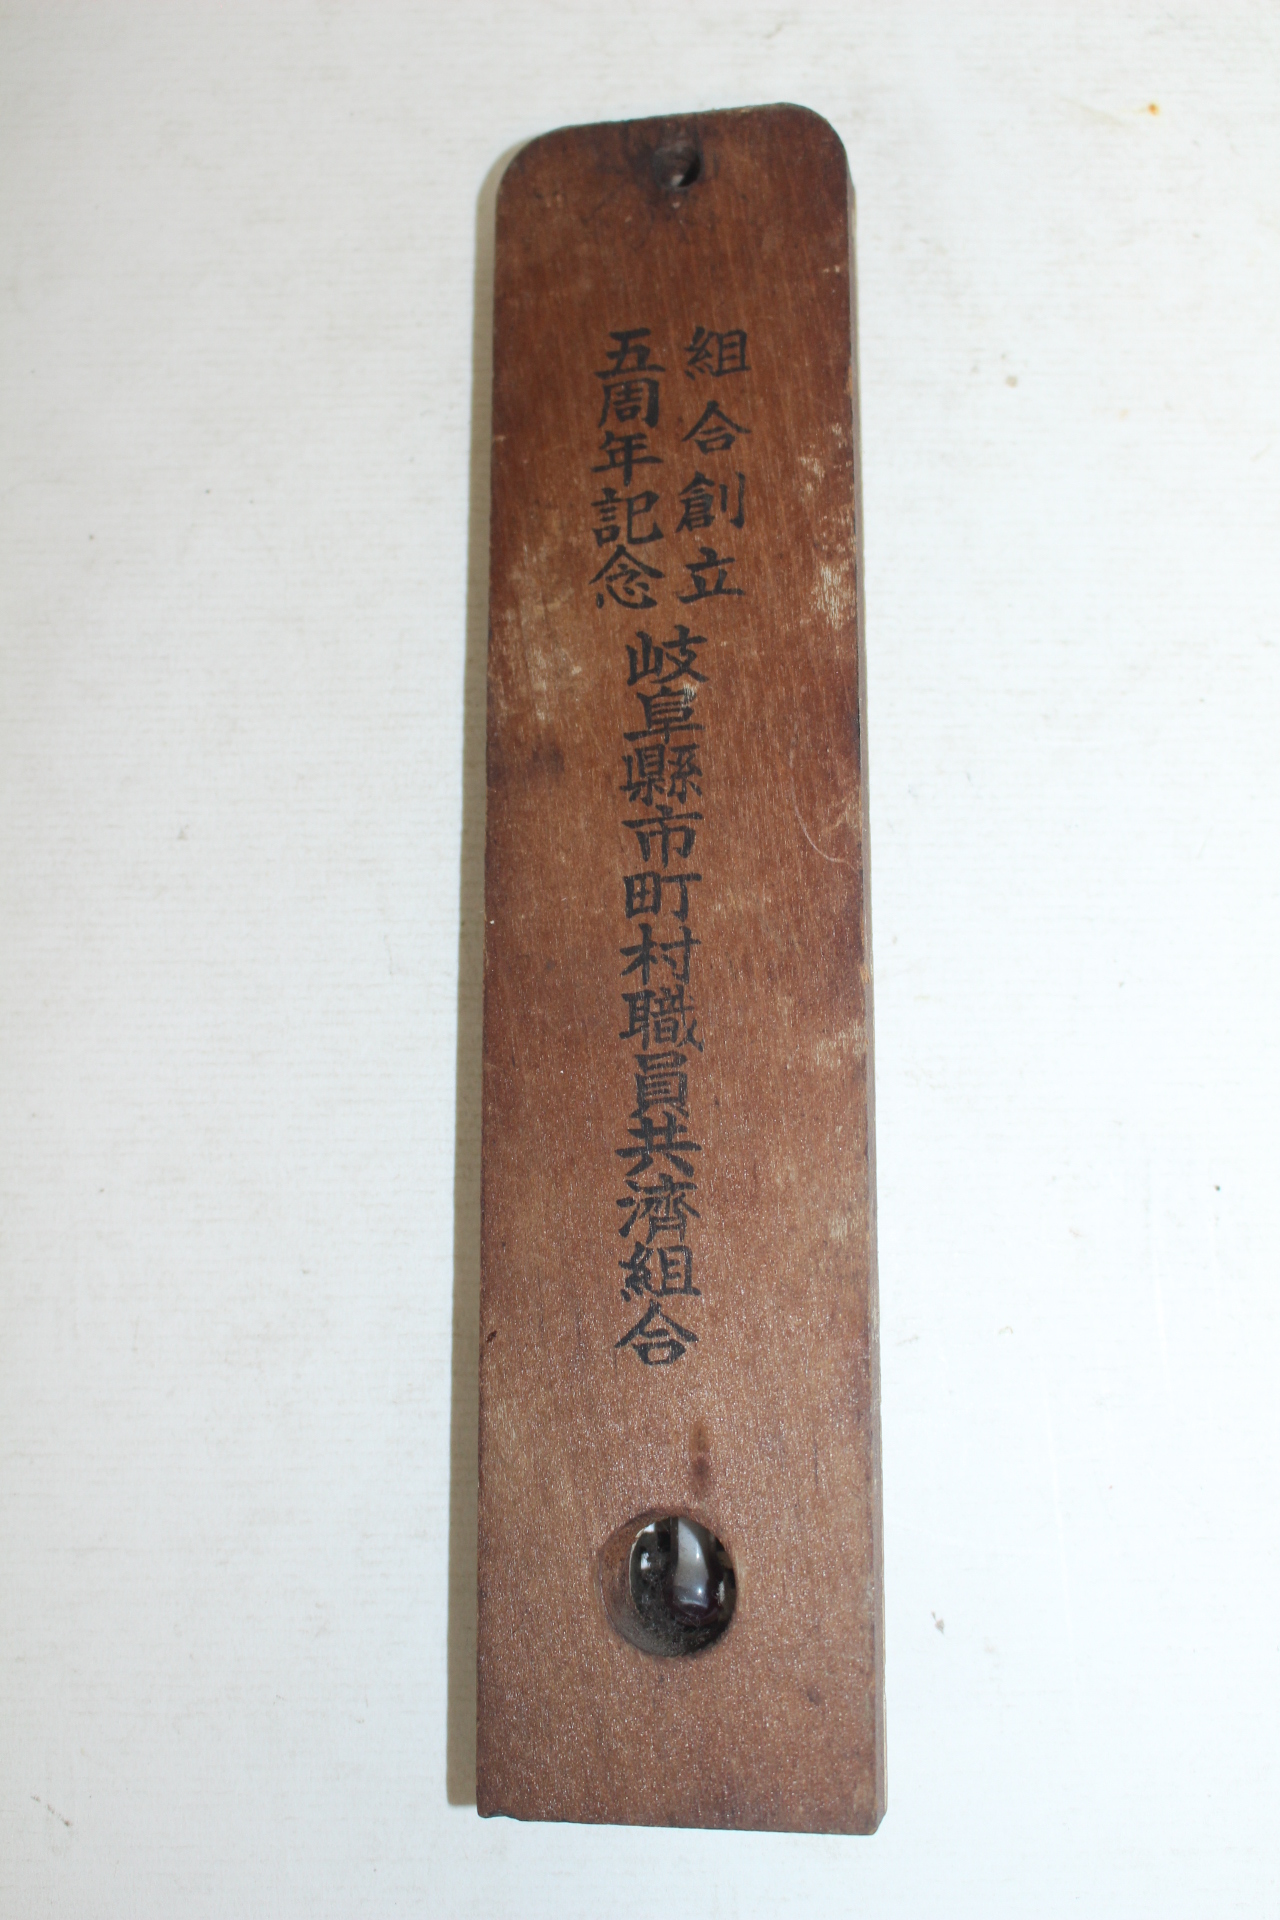 組合創立
五周年記念
岐阜縣市町村職員共濟組合